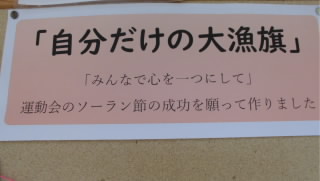 「自分だけの大漁旗」
「みんなで心を一つにして」
運動会のソーラン節の成功を願って作りました